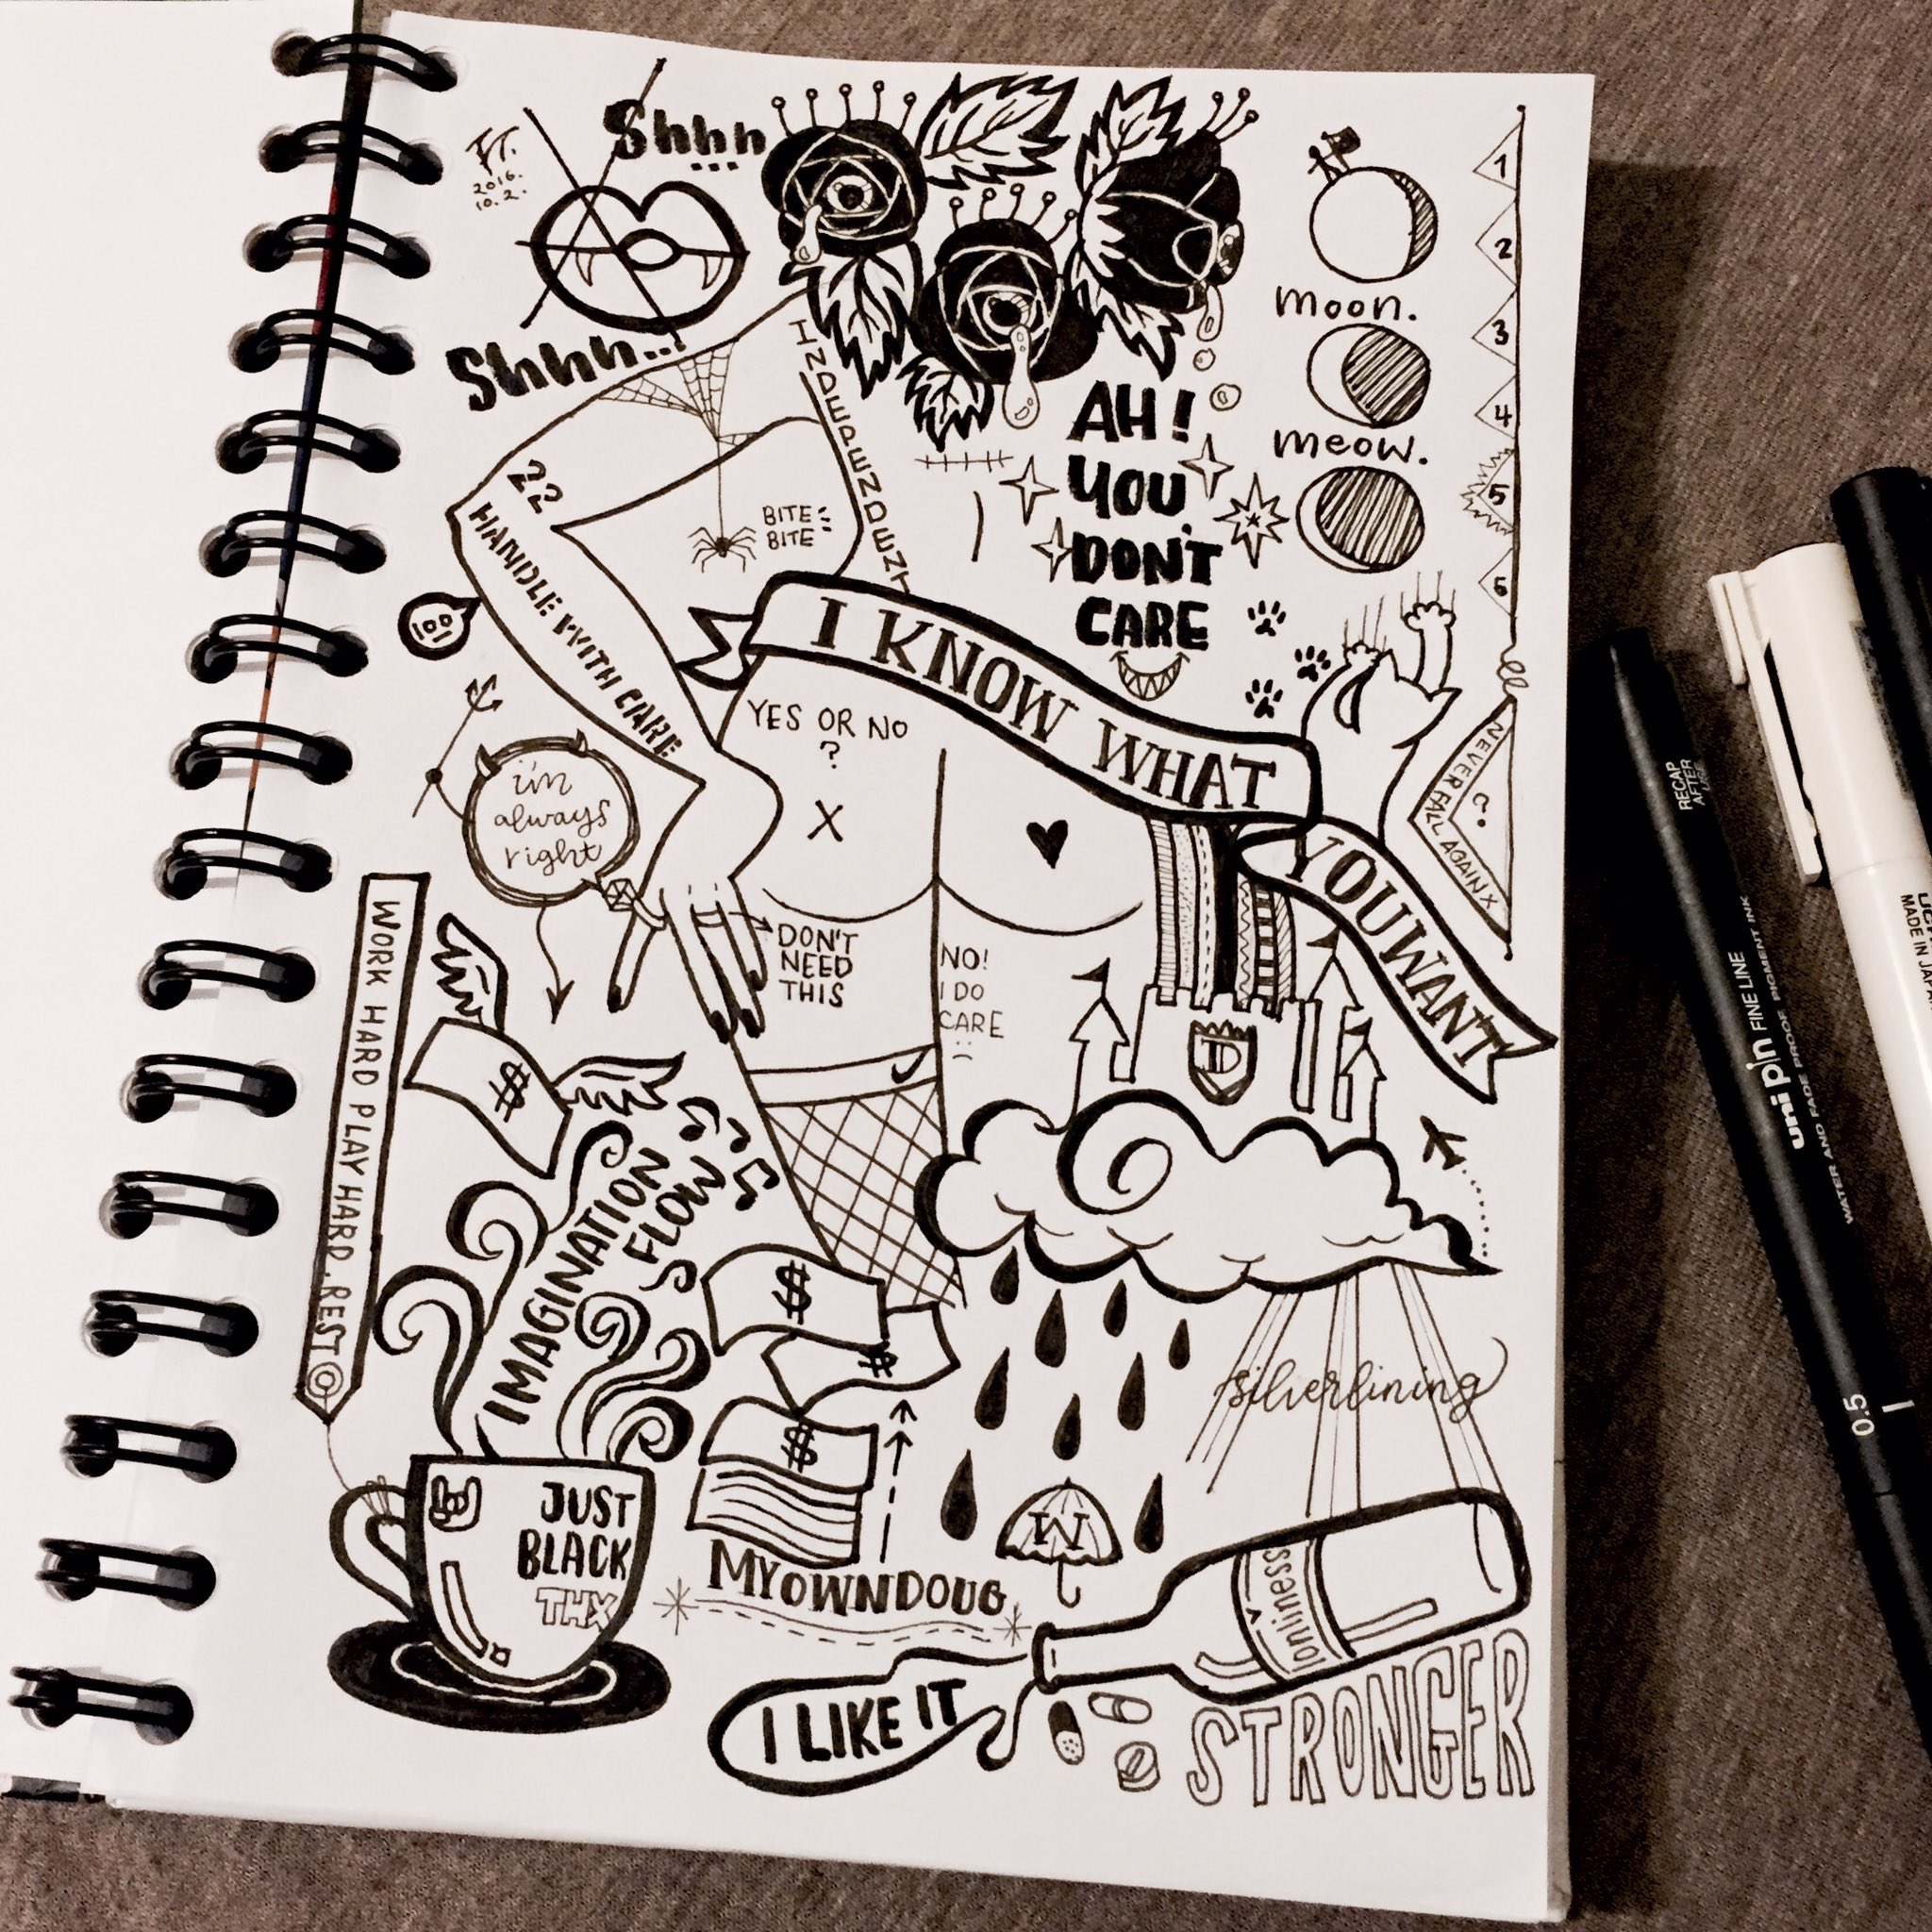 FT.
2016.
10.2.
Shhh
...
Shhh...
INDEPENDENT
22
HANDLE WITH CARE
BITE
BITE
AH!
YOU
DON'T
CARE
moon.
meow.
1
2
3
4
5
6
NEVER FALL AGAIN X
?
I KNOW WHAT
YOU WANT
YES OR NO
?
X
i'm
always
right
DON'T
NEED
THIS
NO!
I DO
CARE
WORK HARD PLAY HARD. REST
$
IMAGINATION
FLOW
$
$
$
D
JUST
BLACK
THX
MY OWN DOUG
W
silverlining
loniliness
I LIKE IT
STRONGER
RECAP
AFTER
uni pin FINE LINE
WATER AND FADE PROOF PIGMENT INK
0.5
MADE IN JAPAN